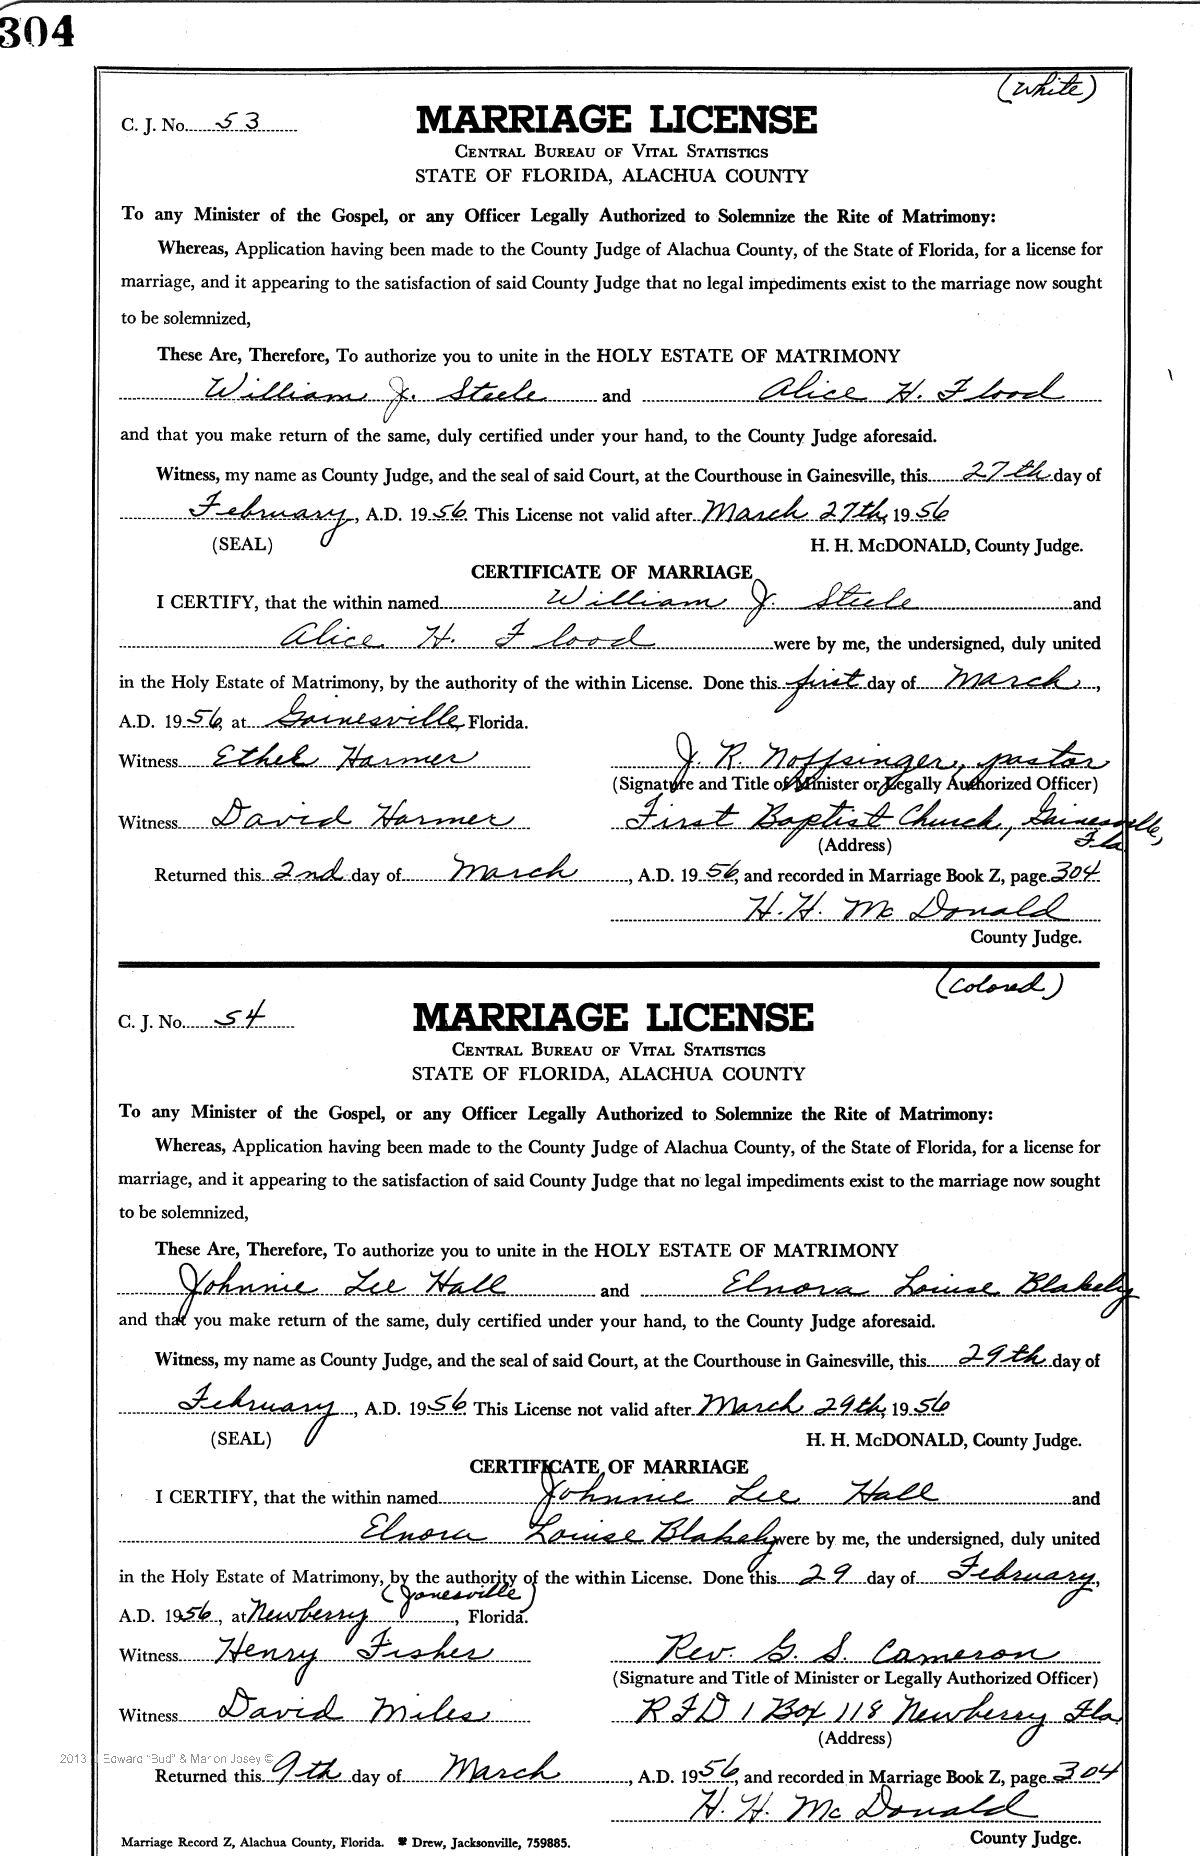 304
(White)
C. J. No. 53
MARRIAGE LICENSE
CENTRAL BUREAU OF VITAL STATISTICS
STATE OF FLORIDA, ALACHUA COUNTY
To any Minister of the Gospel, or any Officer Legally Authorized to Solemnize the Rite of Matrimony:
Whereas, Application having been made to the County Judge of Alachua County, of the State of Florida, for a license for
marriage, and it appearing to the satisfaction of said County Judge that no legal impediments exist to the marriage now sought
to be solemnized,
These Are, Therefore, To authorize you to unite in the HOLY ESTATE OF MATRIMONY
William J. Steele and Alice H. Flood
and that you make return of the same, duly certified under your hand, to the County Judge aforesaid.
Witness, my name as County Judge, and the seal of said Court, at the Courthouse in Gainesville, this 27th day of
February, A.D. 1956. This License not valid after March 27th, 1956
(SEAL) H. H. McDONALD, County Judge.
CERTIFICATE OF MARRIAGE
I CERTIFY, that the within named William J. Steele and
Alice H. Flood were by me, the undersigned, duly united
in the Holy Estate of Matrimony, by the authority of the within License. Done this first day of March,
A.D. 1956, at Gainesville, Florida.
Witness Ethel Harmer J. R. Noffsinger, pastor
(Signature and Title of Minister or Legally Authorized Officer)
Witness David Harmer First Baptist Church, Gainesville,
Fla
(Address)
Returned this 2nd day of March, A.D. 1956, and recorded in Marriage Book Z, page 304
H. H. McDonald
County Judge.
(Colored)
C. J. No. 54
MARRIAGE LICENSE
CENTRAL BUREAU OF VITAL STATISTICS
STATE OF FLORIDA, ALACHUA COUNTY
To any Minister of the Gospel, or any Officer Legally Authorized to Solemnize the Rite of Matrimony:
Whereas, Application having been made to the County Judge of Alachua County, of the State of Florida, for a license for
marriage, and it appearing to the satisfaction of said County Judge that no legal impediments exist to the marriage now sought
to be solemnized,
These Are, Therefore, To authorize you to unite in the HOLY ESTATE OF MATRIMONY
Johnnie Lee Hall and Elnora Louise Blakely
and that you make return of the same, duly certified under your hand, to the County Judge aforesaid.
Witness, my name as County Judge, and the seal of said Court, at the Courthouse in Gainesville, this 29th day of
February, A.D. 1956. This License not valid after March 29th, 1956
(SEAL) H. H. McDONALD, County Judge.
CERTIFICATE OF MARRIAGE
I CERTIFY, that the within named Johnnie Lee Hall and
Elnora Louise Blakely were by me, the undersigned, duly united
in the Holy Estate of Matrimony, by the authority of the within License. Done this 29 day of February,
(Jonesville)
A.D. 1956, at Newberry, Florida.
Witness Henry Fisher Rev. G. S. Cameron
(Signature and Title of Minister or Legally Authorized Officer)
Witness David Miles RFD 1 Box 118 Newberry Fla.
(Address)
2013 Edward "Bud" & Marion Josey ©
Returned this 9th day of March, A.D. 1956, and recorded in Marriage Book Z, page 304
H. H. McDonald
County Judge.
Marriage Record Z, Alachua County, Florida. Drew, Jacksonville, 759885.